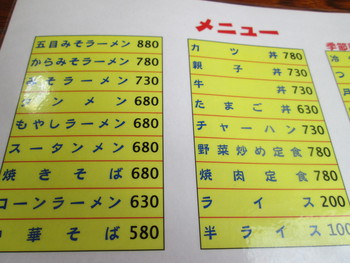 メニュー
五目みそラーメン 880
からみそラーメン 780
みそラーメン 730
タンメン 680
もやしラーメン 680
スータンメン 680
焼きそば 680
コーンラーメン 630
中華そば 580
カツ丼 780
親子丼 730
牛丼 730
たまご丼 630
チャーハン 730
野菜炒め定食 780
焼肉定食 780
ライス 200
半ライス 100
季節
冷
つ